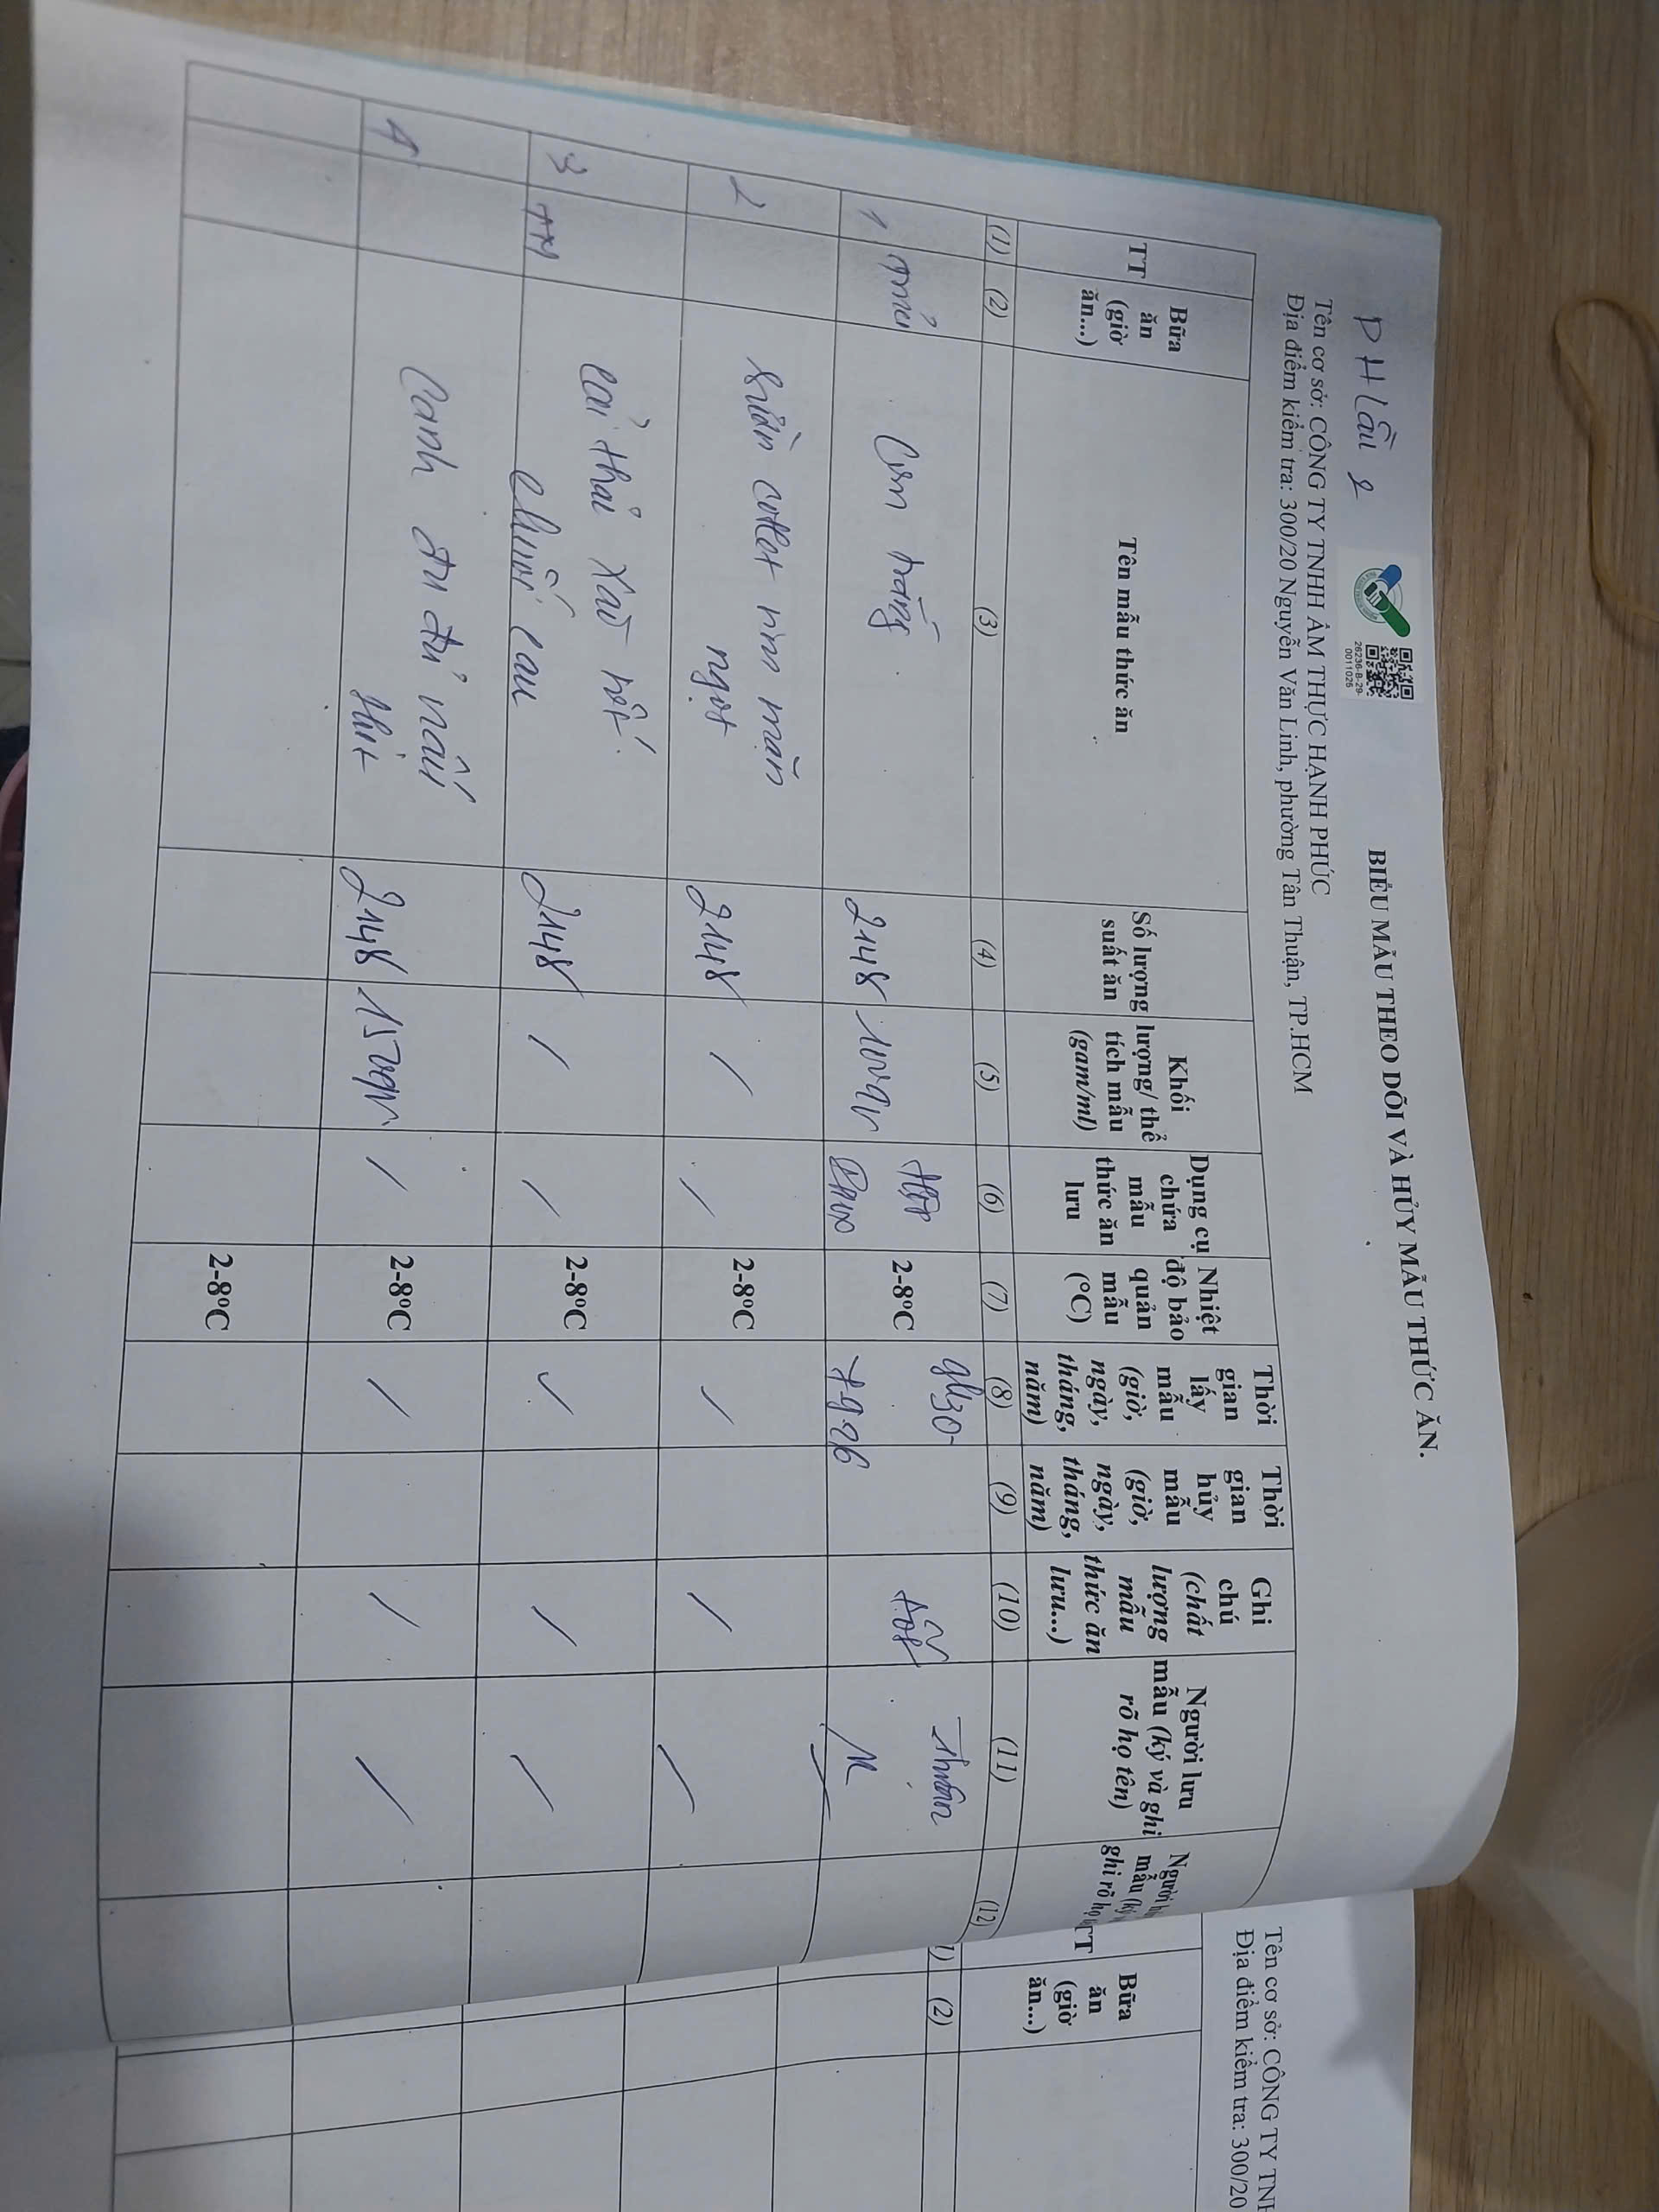 PH lầu 2
26236-B-29-
0011025
BIỂU MẪU THEO DÕI VÀ HỦY MẪU THỨC ĂN.
Tên cơ sở: CÔNG TY TNHH ẨM THỰC HẠNH PHÚC
Địa điểm kiểm tra: 300/20 Nguyễn Văn Linh, phường Tân Thuận, TP.HCM
TT
Bữa ăn (giờ ăn...)
Tên mẫu thức ăn
Số lượng suất ăn
Khối lượng/ thể tích mẫu (gam/ml)
Dụng cụ chứa mẫu thức ăn lưu
Nhiệt độ bảo quản mẫu (°C)
Thời gian lấy mẫu (giờ, ngày, tháng, năm)
Thời gian hủy mẫu (giờ, ngày, tháng, năm)
Ghi chú (chất lượng mẫu thức ăn lưu...)
Người lưu mẫu (ký và ghi rõ họ tên)
Người mẫu (ký ghi rõ họ
(1) (2) (3) (4) (5) (6) (7) (8) (9) (10) (11) (12)
1 Cơm trắng 2148 100gr Hộp 2-8°C 9h30- tốt Thuận
2 cotlet rim mặn ngọt 2148 / / 2-8°C / / /
3 Cải thải xào 2148 / / 2-8°C / /
chuối cau
4 Canh đu đủ nấu thịt 2148 150gr / 2-8°C / / /
2-8°C
Tên cơ sở: CÔNG TY TNH
Địa điểm kiểm tra: 300/20
TT
Bữa ăn (giờ ăn...)
1) (2)